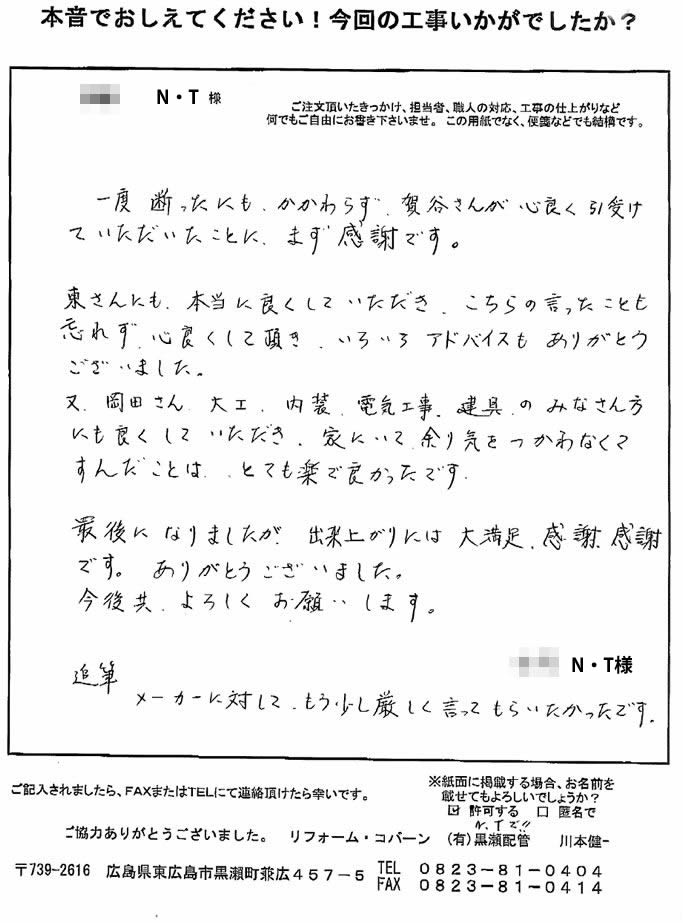 本音でおしえてください！今回の工事いかがでしたか？
N・T 様
ご注文頂いたきっかけ、担当者、職人の対応、工事の仕上がりなど
何でもご自由にお書き下さいませ。この用紙でなく、便箋などでも結構です。
一度 断ったにも、かかわらず、賀谷さんが 心良く 引受け
ていただいたことに、まず 感謝です。
東さんにも、本当に良くして いただき、こちらの言ったことも
忘れず、心良くして頂き、いろいろ アドバイスも ありがとう
ございました。
又、岡田さん、大工、内装、電気工事、建具、の みなさん方
にも良くして いただき、家にいて、余り気を つかわなくて
すんだことは、とても楽で良かったです。
最後に なりましたが、出来上がりには 大満足、感謝、感謝
です。 ありがとうございました。
今後共、よろしく お願いします。
N・T様
追筆
メーカーに対して、もう少し厳しく言って もらいたかったです。
ご記入されましたら、FAXまたはTELにて連絡頂けたら幸いです。
※紙面に掲載する場合、お名前を
載せてもよろしいでしょうか？
☑ 許可する ☐ 匿名で
N.Tで!!
ご協力ありがとうございました。 リフォーム・コバーン （有）黒瀬配管 川本健一
〒739-2616 広島県東広島市黒瀬町兼広４５７－５
TEL ０８２３－８１－０４０４
FAX ０８２３－８１－０４１４